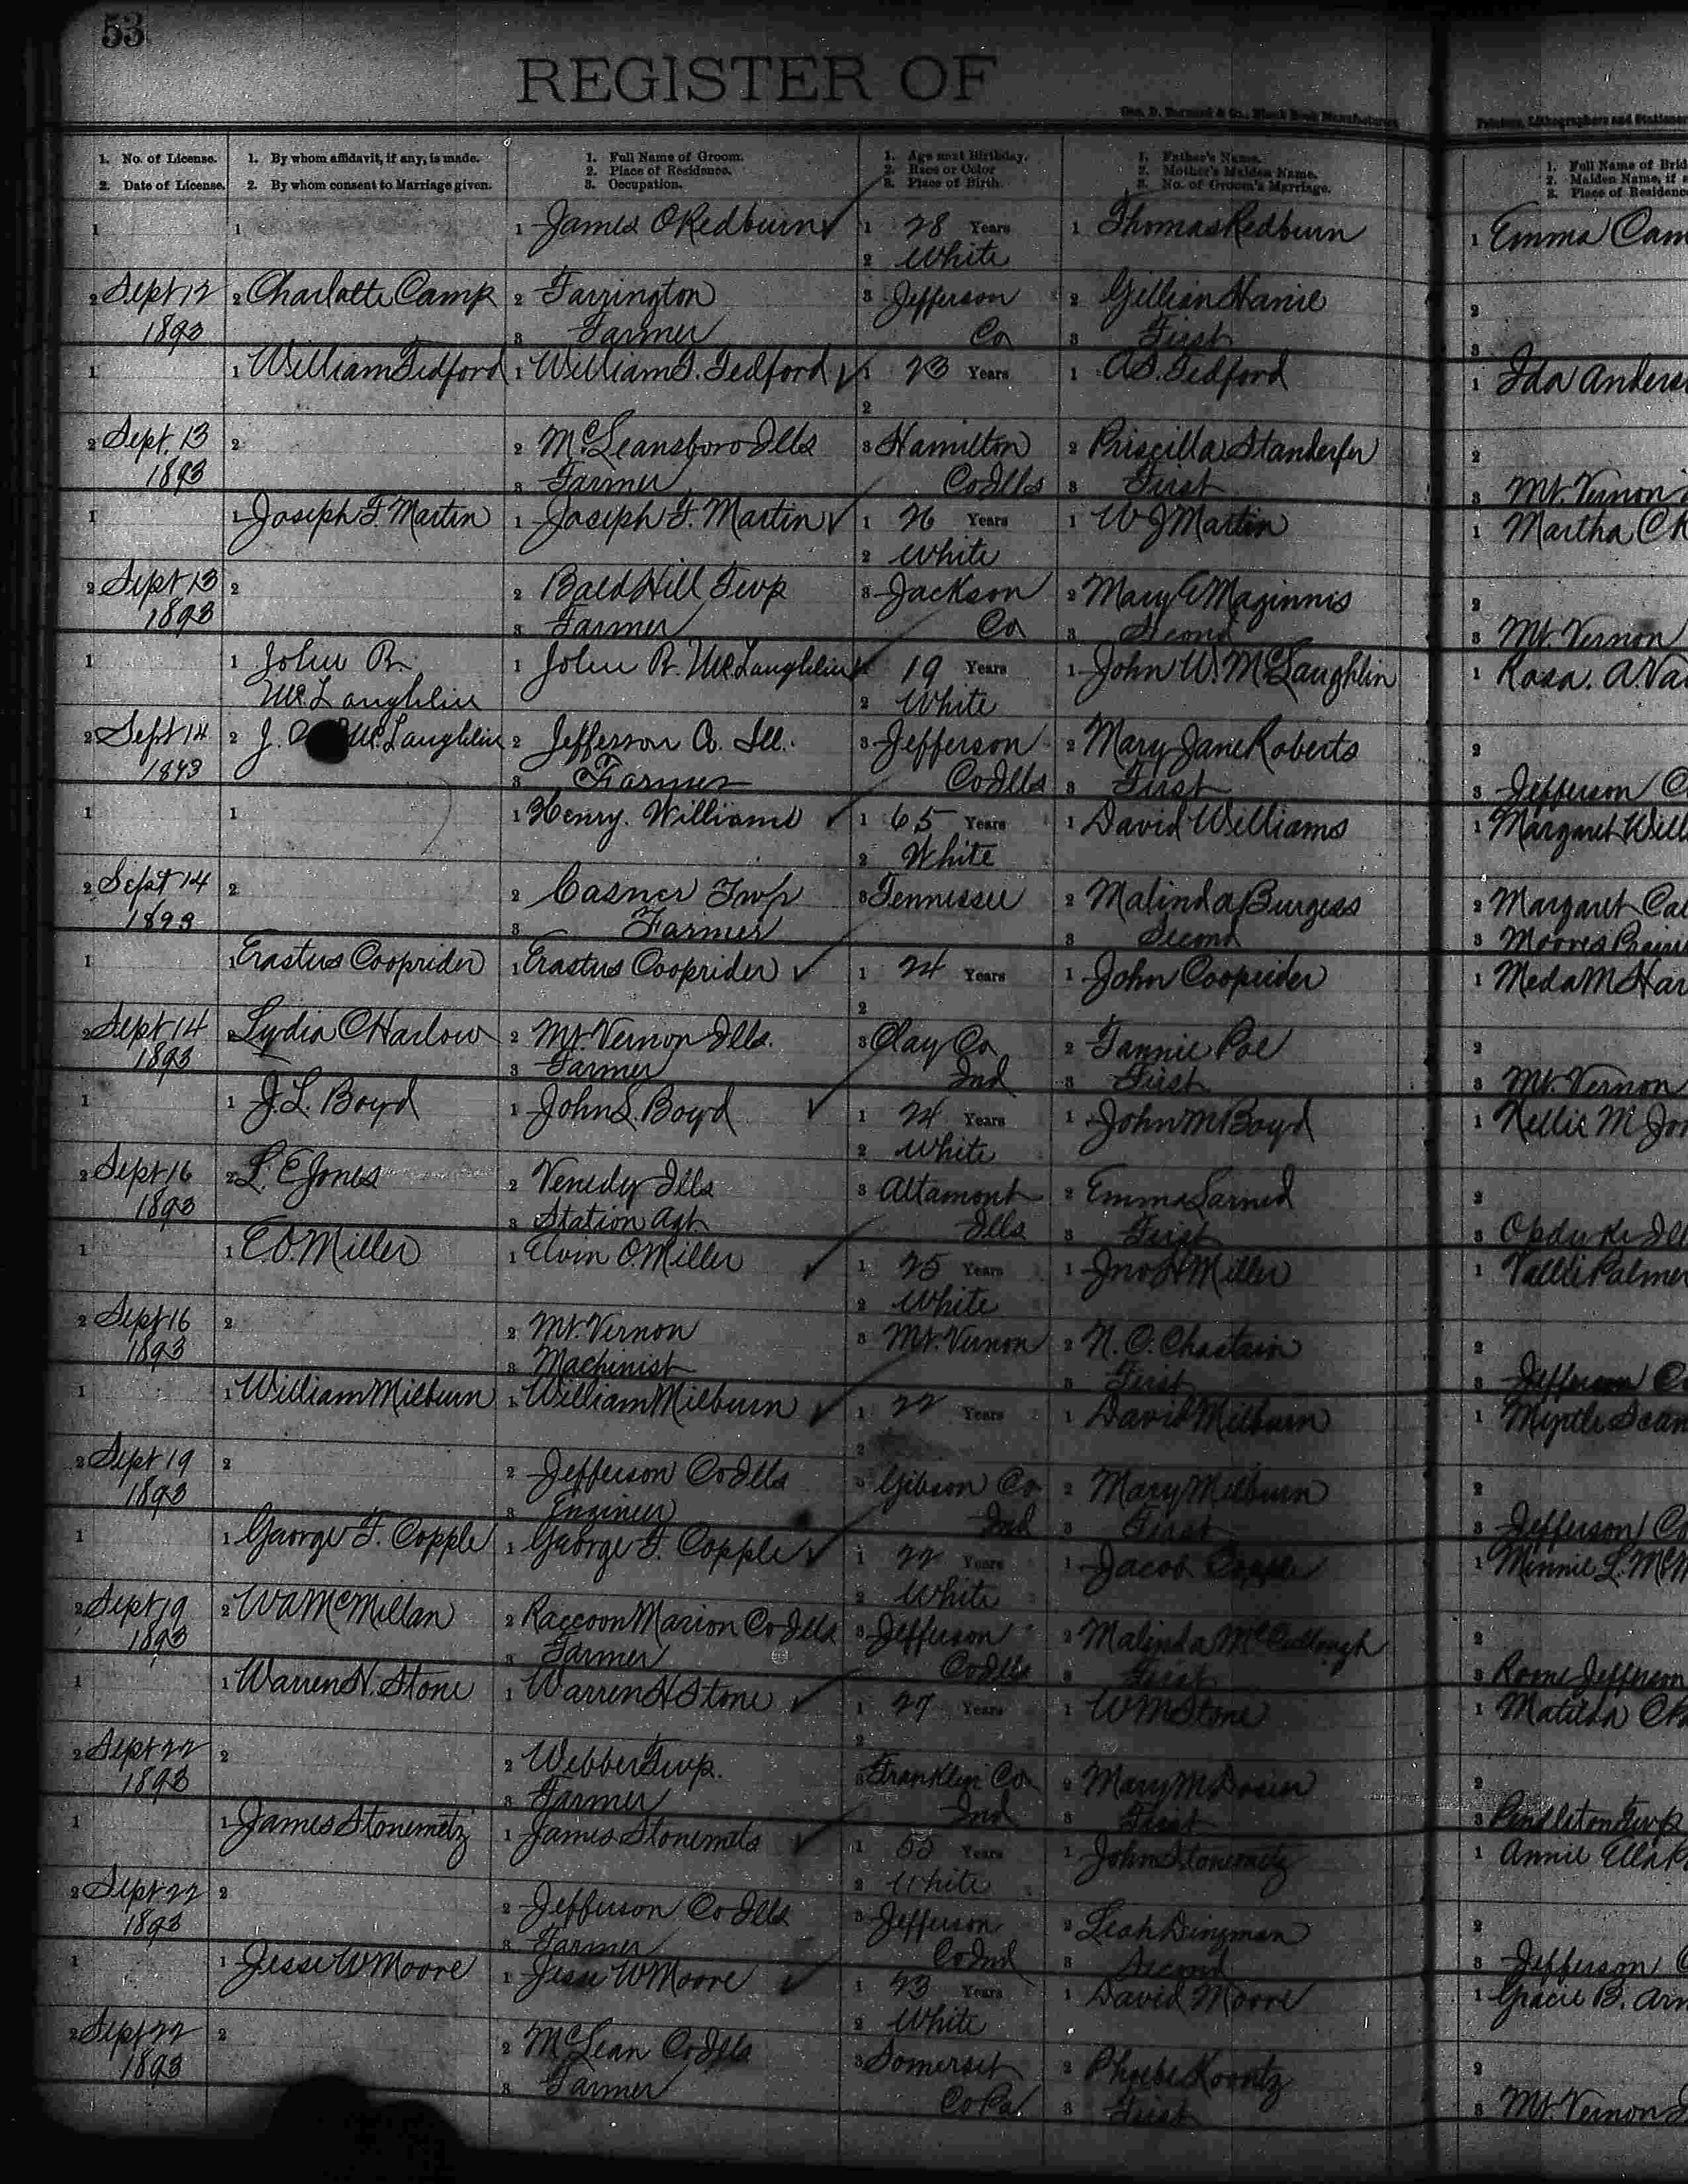 53
REGISTER OF
Geo. D. Barnard & Co., Blank Book Manufacturers
Printers, Lithographers and Stationer
1. No. of License.
2. Date of License.
1. By whom affidavit, if any, is made.
2. By whom consent to Marriage given.
1. Full Name of Groom.
2. Place of Residence.
3. Occupation.
1. Age next Birthday.
2. Race or Color
3. Place of Birth.
1. Father's Name.
2. Mother's Maiden Name.
3. No. of Groom's Marriage.
1. Full Name of Brid
2. Maiden Name, if a
3. Place of Residence
1 1 1 James O Redburn 1 28 Years 1 Thomas Redburn 1 Emma Cam
2 White
2 Sept 12 2 Charlotte Camp 2 Farrington 3 Jefferson 2 Gillian Hanie 2
1893 3 Farmer Co 3 First 3
1 1 William Tedford 1 William T. Tedford 1 23 Years 1 A.S. Tedford 1 Ida Anders
2
2 Sept. 13 2 2 McLeansboro Ills 3 Hamilton 2 Priscilla Standerfer 2
1893 3 Farmer Co Ills 3 First 3 Mt. Vernon
1 1 Joseph F. Martin 1 Joseph F. Martin 1 26 Years 1 W J Martin 1 Martha C
2 White
2 Sept 13 2 2 Bald Hill Twp 3 Jackson 2 Mary E Maginnis 2
1893 3 Farmer Co 3 Second 3 Mt. Vernon
1 1 John R. 1 John R. McLaughlin 19 Years 1 John W. McLaughlin 1 Rosa. A. Va
McLaughlin 2 White
2 Sept 14 2 J. McLaughlin 2 Jefferson Co. Ill. 3 Jefferson 2 Mary Jane Roberts 2
1893 3 Farmer Co Ills 3 First 3 Jefferson C
1 1 1 Henry. Williams 1 65 Years 1 David Williams 1 Margaret Will
2 White
2 Sept 14 2 2 Casner Twp 3 Tennessee 2 Malinda Burgess 2 Margaret Ca
1893 3 Farmer 3 Second 3 Moores Prairi
1 1 Erastus Cooprider 1 Erastus Cooprider 1 24 Years 1 John Cooprider 1 Meda M Har
2
2 Sept 14 2 Lydia C Harlow 2 Mt. Vernon Ills. 3 Clay Co 2 Fannie Poe 2
1893 3 Farmer Ind 3 First 3 Mt. Vernon
1 1 J. L. Boyd 1 John L. Boyd 1 24 Years 1 John M Boyd 1 Nellie M Jon
2 White
2 Sept 16 2 L. E Jones 2 Venedy Ills 3 Altamont 2 Emma Larned 2
1893 3 Station Agt Ills 3 First 3 Opdyke Ill
1 1 E. O. Miller 1 Elvin O. Miller 1 25 Years 1 Jno H Miller 1 Vallie Palmer
2 White
2 Sept 16 2 2 Mt. Vernon 3 Mt. Vernon 2 N. C. Chastain 2
1893 3 Machinist 3 First 3 Jefferson C
1 1 William Milburn 1 William Milburn 1 22 Years 1 David Milburn 1 Myrtle Sean
2
2 Sept 19 2 2 Jefferson Co Ills 3 Gibson Co 2 Mary Milburn 2
1893 3 Engineer Ind 3 First 3 Jefferson Co
1 1 George F. Copple 1 George F. Copple 1 22 Years 1 Jacob Copple 1 Minnie L. McM
2 White
2 Sept 19 2 W A McMillan 2 Raccoon Marion Co Ills 3 Jefferson 2 Malinda McCullough 2
1893 3 Farmer Co Ills 3 First 3 Rome Jefferson
1 1 Warren N. Stone 1 Warren N Stone 1 27 Years 1 W M Stone 1 Matilda Cha
2
2 Sept 22 2 2 Webber Twp. 3 Franklin Co 2 Mary M 2
1893 3 Farmer Ind 3 First 3 Pendleton Twp
1 1 James Stonemetz 1 James Stonemets 1 55 Years 1 John Stonemetz 1 Annie Ella
2 White
2 Sept 22 2 2 Jefferson Co Ills 3 Jefferson 2 Leah Dingman 2
1893 3 Farmer Co Ind 3 Second 3 Jefferson C
1 1 Jesse W Moore 1 Jesse W Moore 1 23 Years 1 David Moore 1 Gracie B. Arn
2 White
2 Sept 22 2 2 McLean Co Ills 3 Somerset 2 Phoebe Koontz 2
1893 3 Farmer Co Pa. 3 First 3 Mt. Vernon